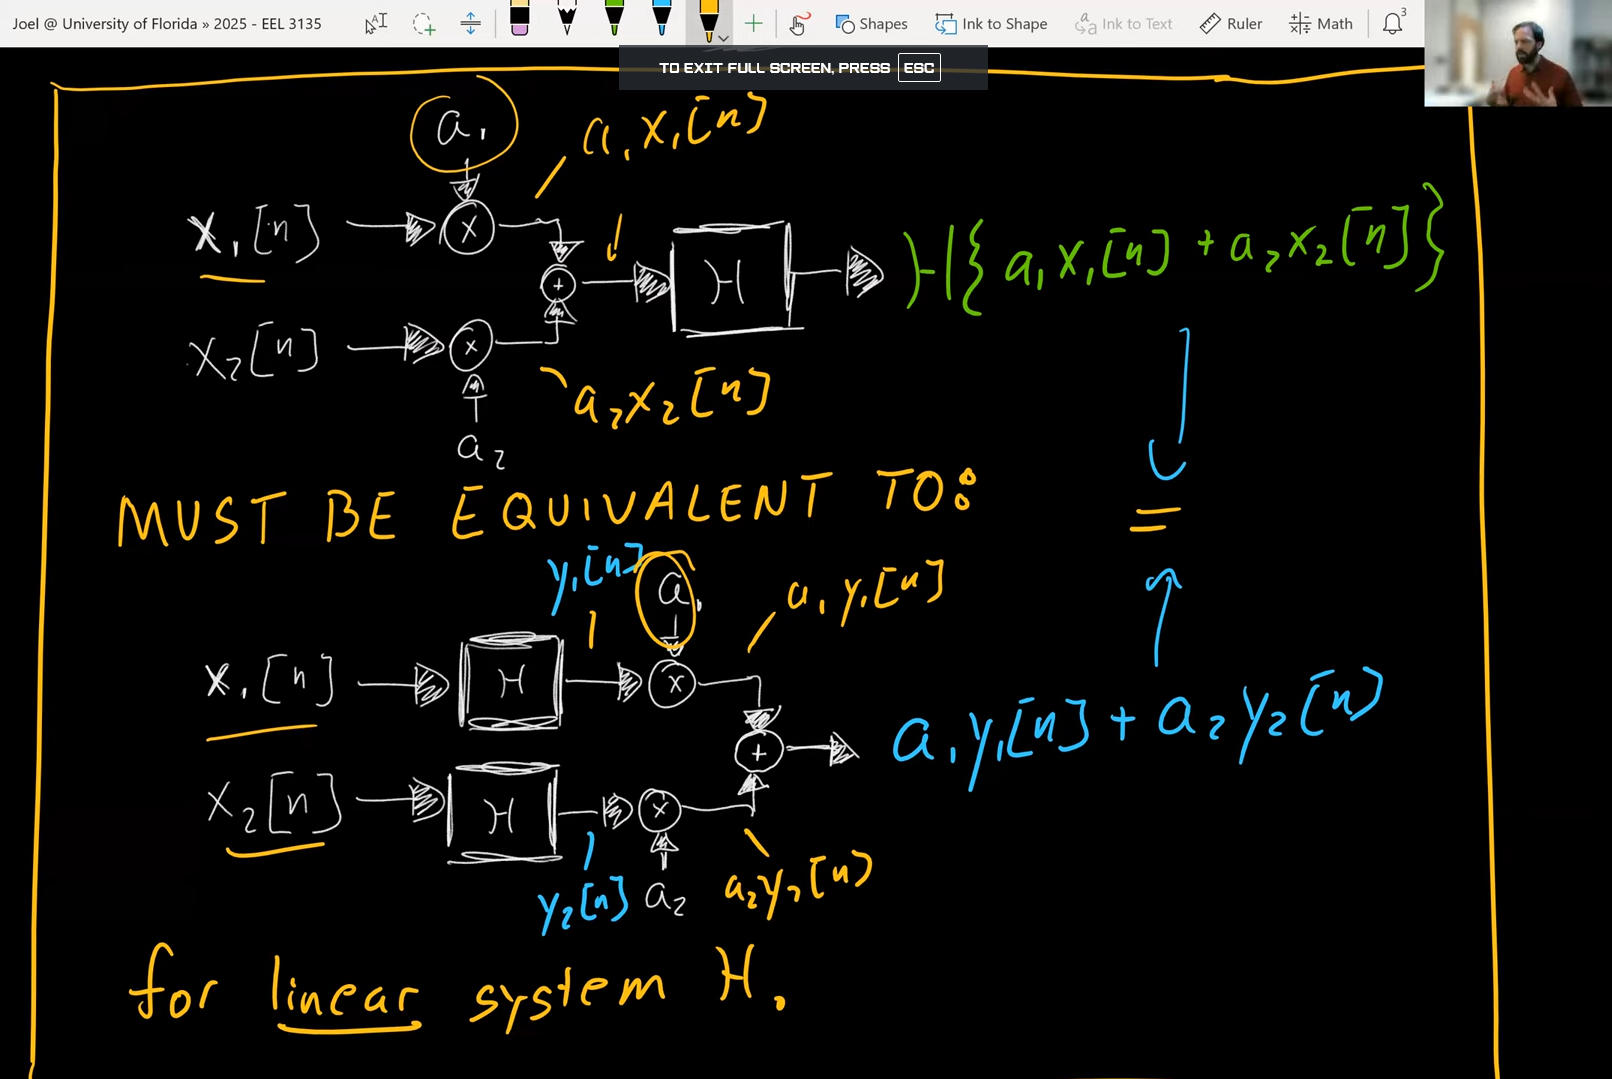 Joel @ University of Florida » 2025 - EEL 3135
Shapes
Ink to Shape
Ink to Text
Ruler
Math
3
TO EXIT FULL SCREEN, PRESS ESC
a₁
a₁x₁[n]
x₁[n]
x
+
H
H{a₁x₁[n] + a₂x₂[n]}
x₂[n]
x
a₂x₂[n]
a₂
MUST BE EQUIVALENT TO:
=
y₁[n]
a₁
a₁y₁[n]
x₁[n]
H
x
+
a₁y₁[n] + a₂y₂[n]
x₂[n]
H
x
y₂[n]
a₂
a₂y₂[n]
for linear system H.